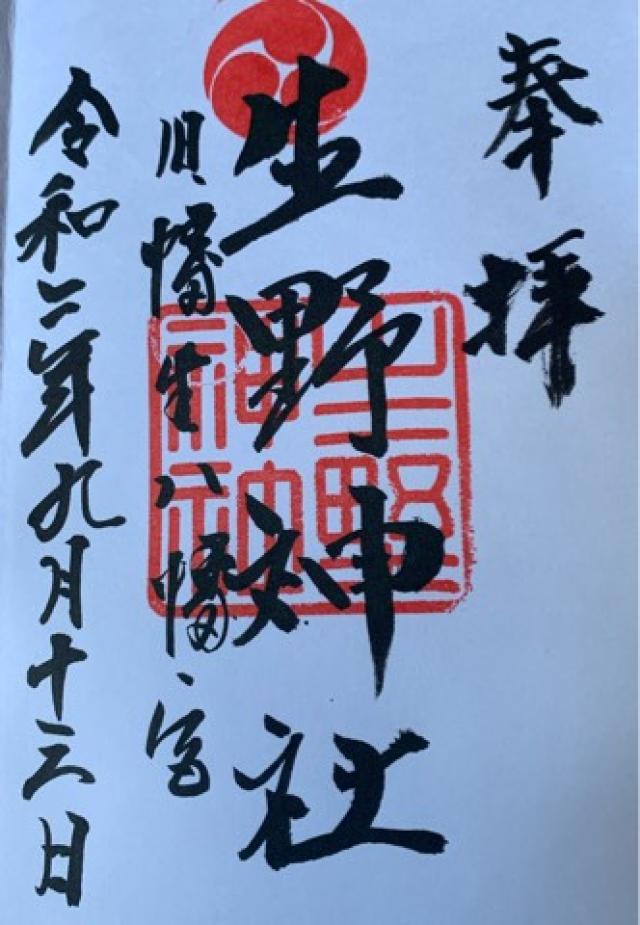 奉拝
生野神社
旧幡生八幡宮
令和二年九月十三日
生野神社